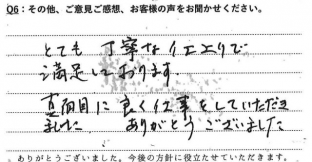 Q6：その他、ご意見ご感想、お客様の声をお聞かせください。
とても 丁寧な仕上りで
満足しております。
真面目に 良く仕事をしていただき
ました ありがとうございました
ありがとうございました。今後の方針に役立たせていただきます。